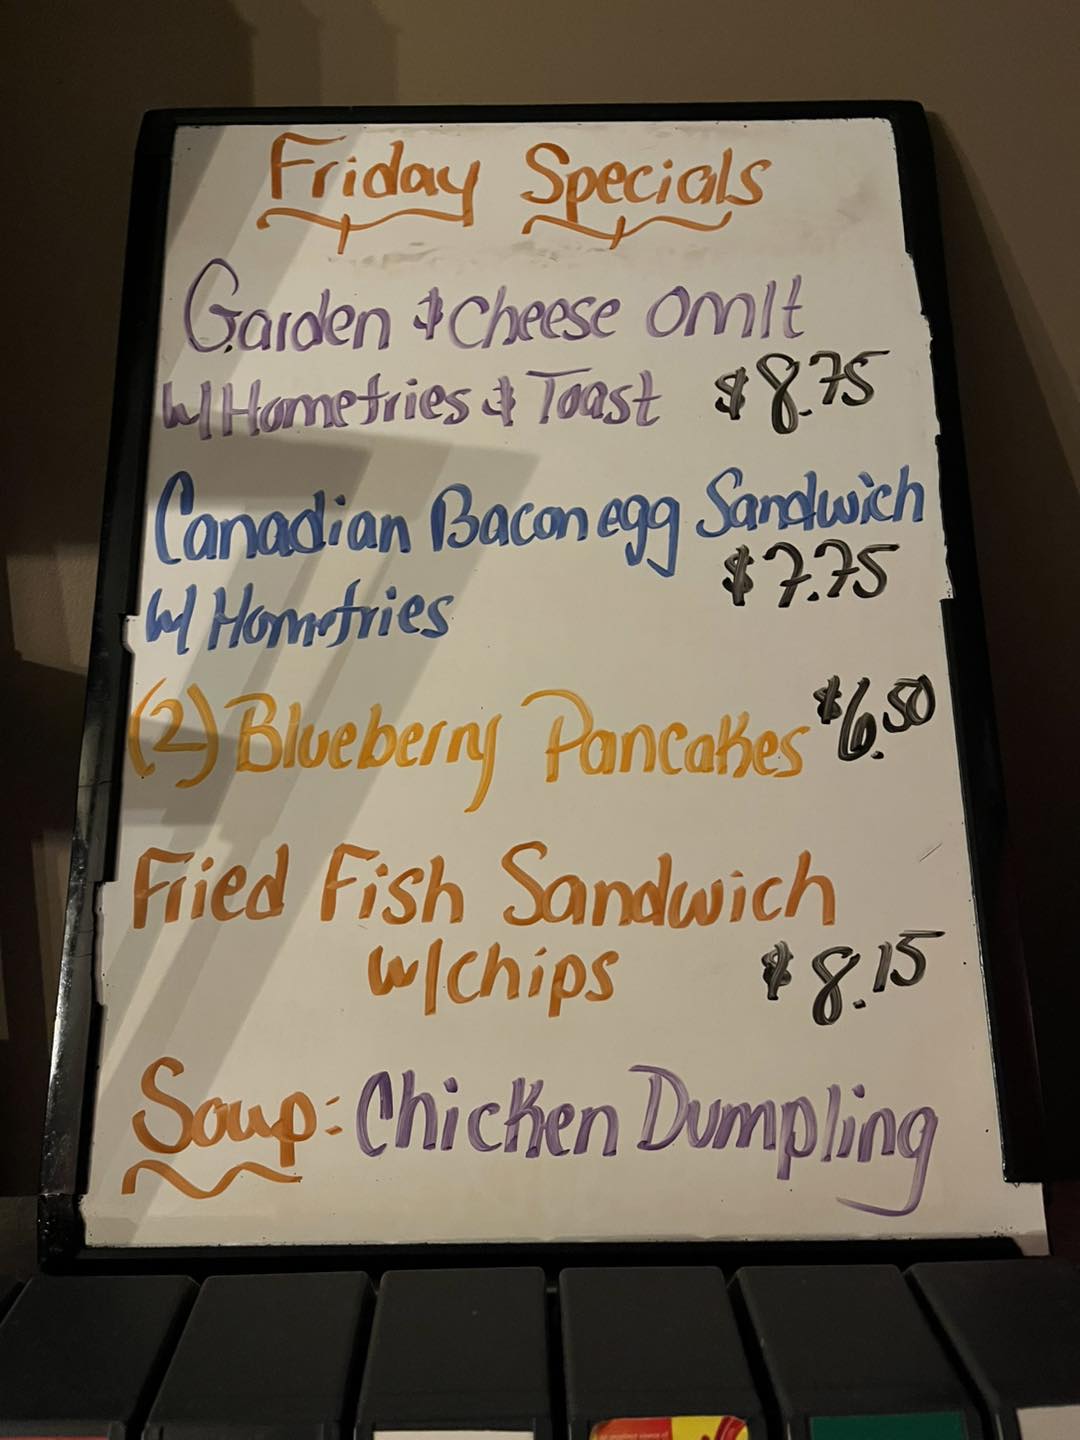 Friday Specials
Garden & Cheese Omlt
w/ Homefries & Toast $8.75
Canadian Bacon egg Sandwich
$7.75
w/ Homefries
(2) Blueberry Pancakes $6.50
Fried Fish Sandwich
w/chips $8.15
Soup: Chicken Dumpling